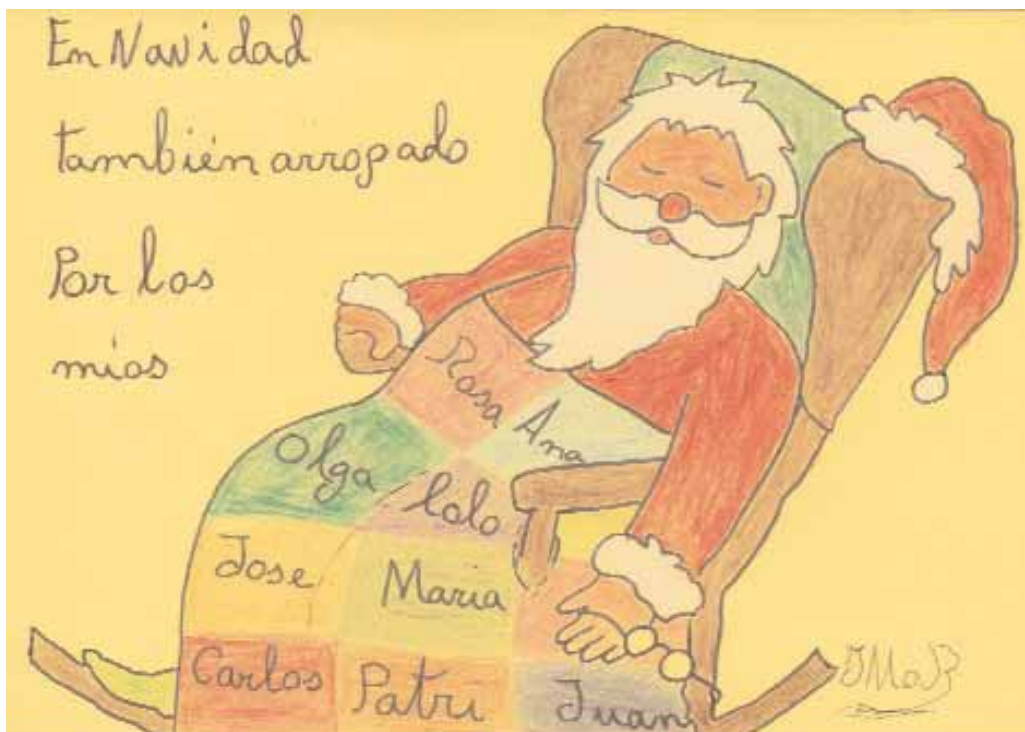 En Navidad
también arropado
Por los
mios
Rosa
Ana
Olga
lolo
Jose
Maria
Carlos
Patri
Juan